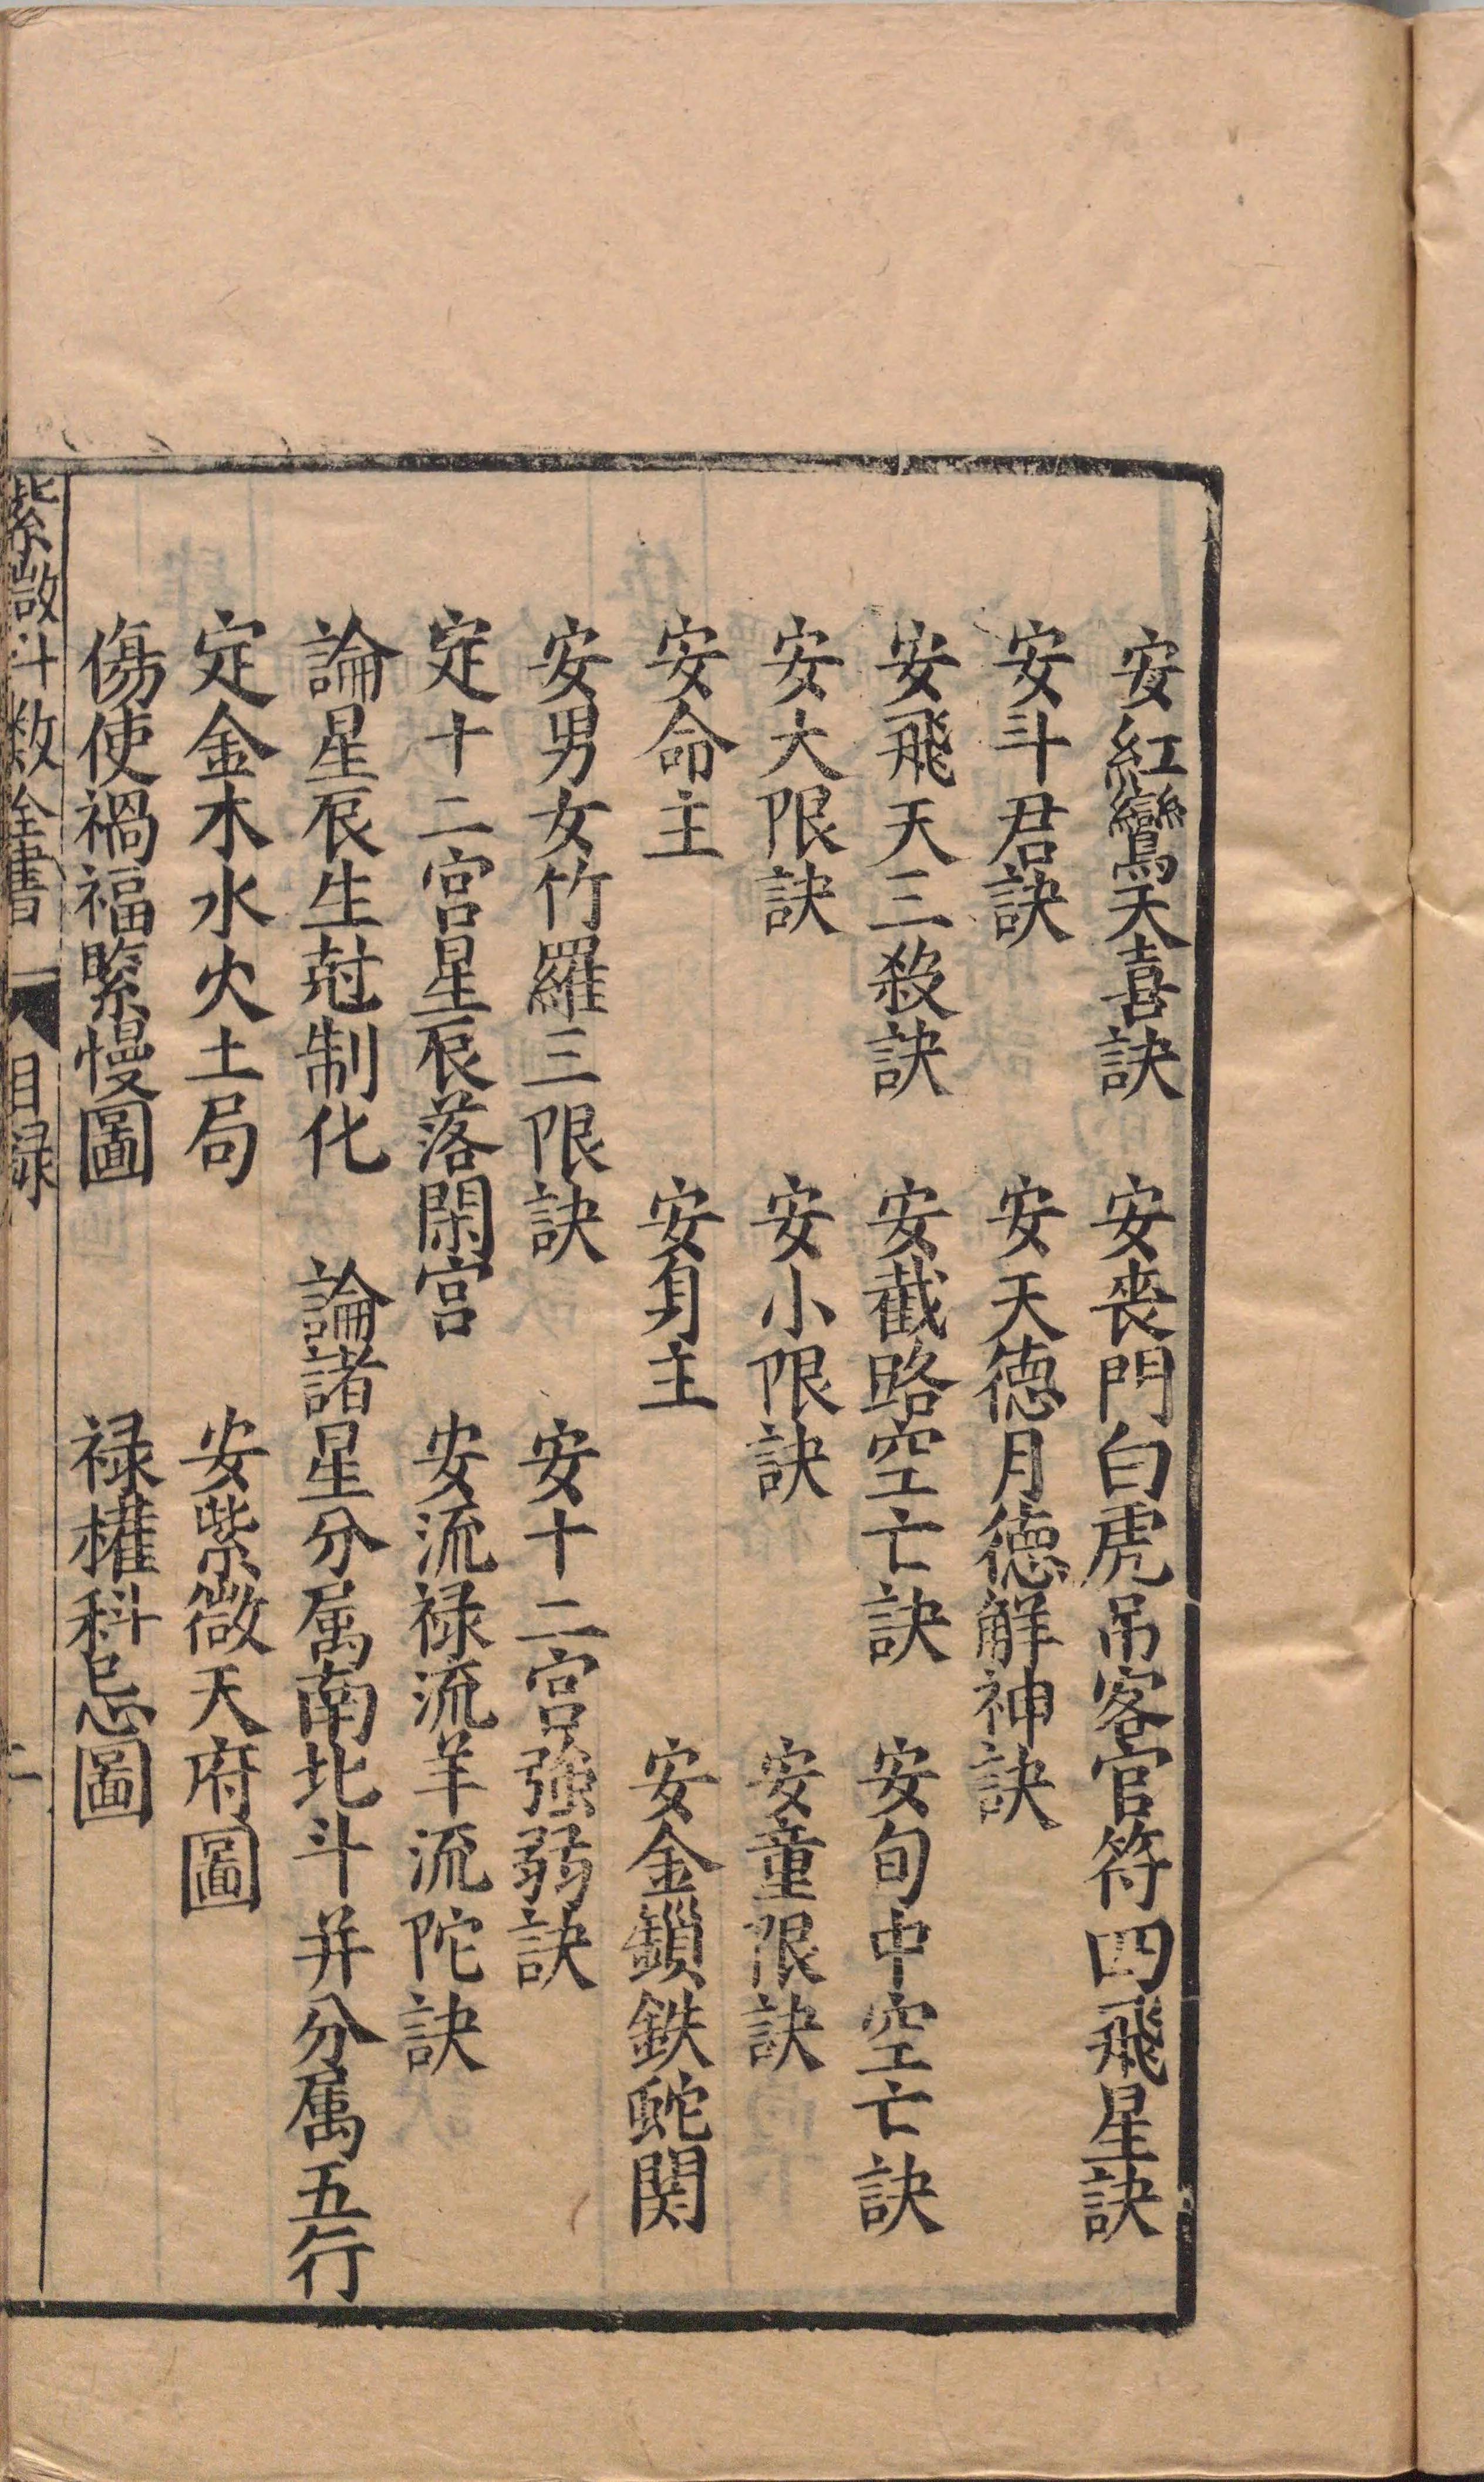 安紅鸞天喜訣　安喪門白虎吊客官符四飛星訣
安斗君訣　安天德月德解神訣
安飛天三殺訣　安截路空亡訣　安旬中空亡訣
安大限訣　安小限訣　安童限訣
安命主　安身主　安金鎖鉄蛇関
安男女竹羅三限訣　安十二宮強弱訣
定十二宮星辰落閑宮　安流禄流羊流陀訣
論星辰生尅制化　論諸星分属南北斗并分属五行
定金木水火土局　安紫微天府圖
傷使禍福緊慢圖　禄權科忌圖
紫微斗数全書　目録　二